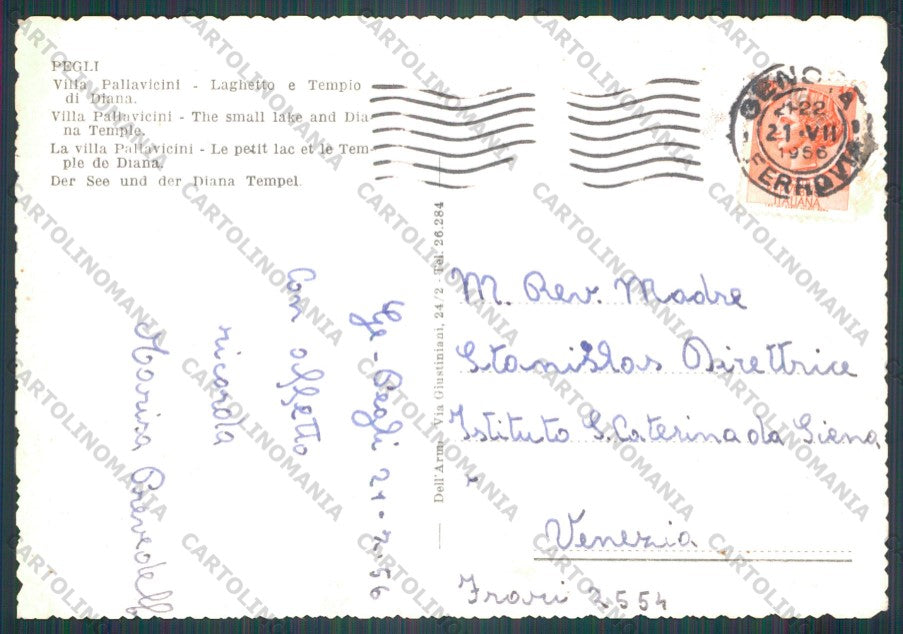 PEGLI
Villa Pallavicini - Laghetto e Tempio
di Diana.
Villa Pallavicini - The small lake and Dia-
na Temple.
La villa Pallavicini - Le petit lac et le Tem-
ple de Diana.
Der See und der Diana Tempel.
GENOVA
21-22
21 • VII
1956
FERROVIA
ITALIANA
Dell'Armi - Via Giustiniani, 24/2 - Tel. 26.284
Ge-Pegli 21-7-56
Con affetto
ricorda
Marisa
M. Rev. Madre
Stanislas Direttrice
Istituto S. Caterina da Siena
Venezia
Frari 2554
CARTOLINOMANIA